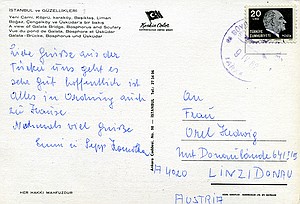 İSTANBUL ve GÜZELLİKLERİ
Yeni Cami, Köprü, karaköy, Beşiktaş, Liman
Boğaz, Çengelköy ve Üsküdar'a bir bakış
A view of Galata Bridge, Bosphorus and Scutary
Vue du pond de Galata, Bosphore et Uskudar
Galata-Brücke, Bosphorus und Üsküdar
Keskin Color
20
TÜRKİYE
CUMHURİYETİ
Liebe Grüße aus der
Türkei uns geht es
sehr gut hoffentlich ist
Alles in Ordnung auch
zu Hause
Nochmals viel Grüße
Emmi u Sepp
Ankara Caddesi, No. 98 - İSTANBUL
An
Frau
Hedwig
Donaulände
A 4020 LINZ/DONAU
AUSTRIA
HER HAKKI MAHFUZDUR